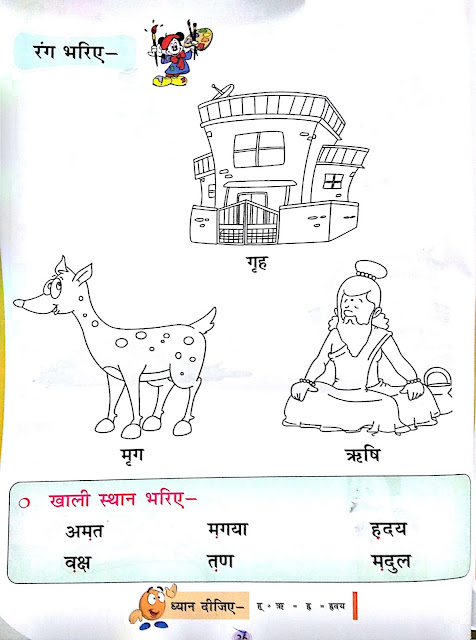 रंग भरिए–
गृह
मृग
ऋषि
खाली स्थान भरिए–
अम़त म़गया ह़दय
व़क्ष त़ण म़दुल
ध्यान दीजिए– ह् + ऋ = हृ = हृदय